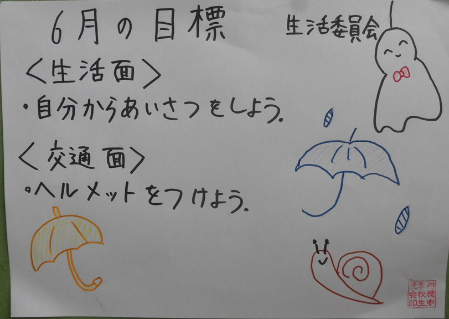 6月の目標
生活委員会
<生活面>
・自分からあいさつをしよう.
<交通面>
・ヘルメットをつけよう.